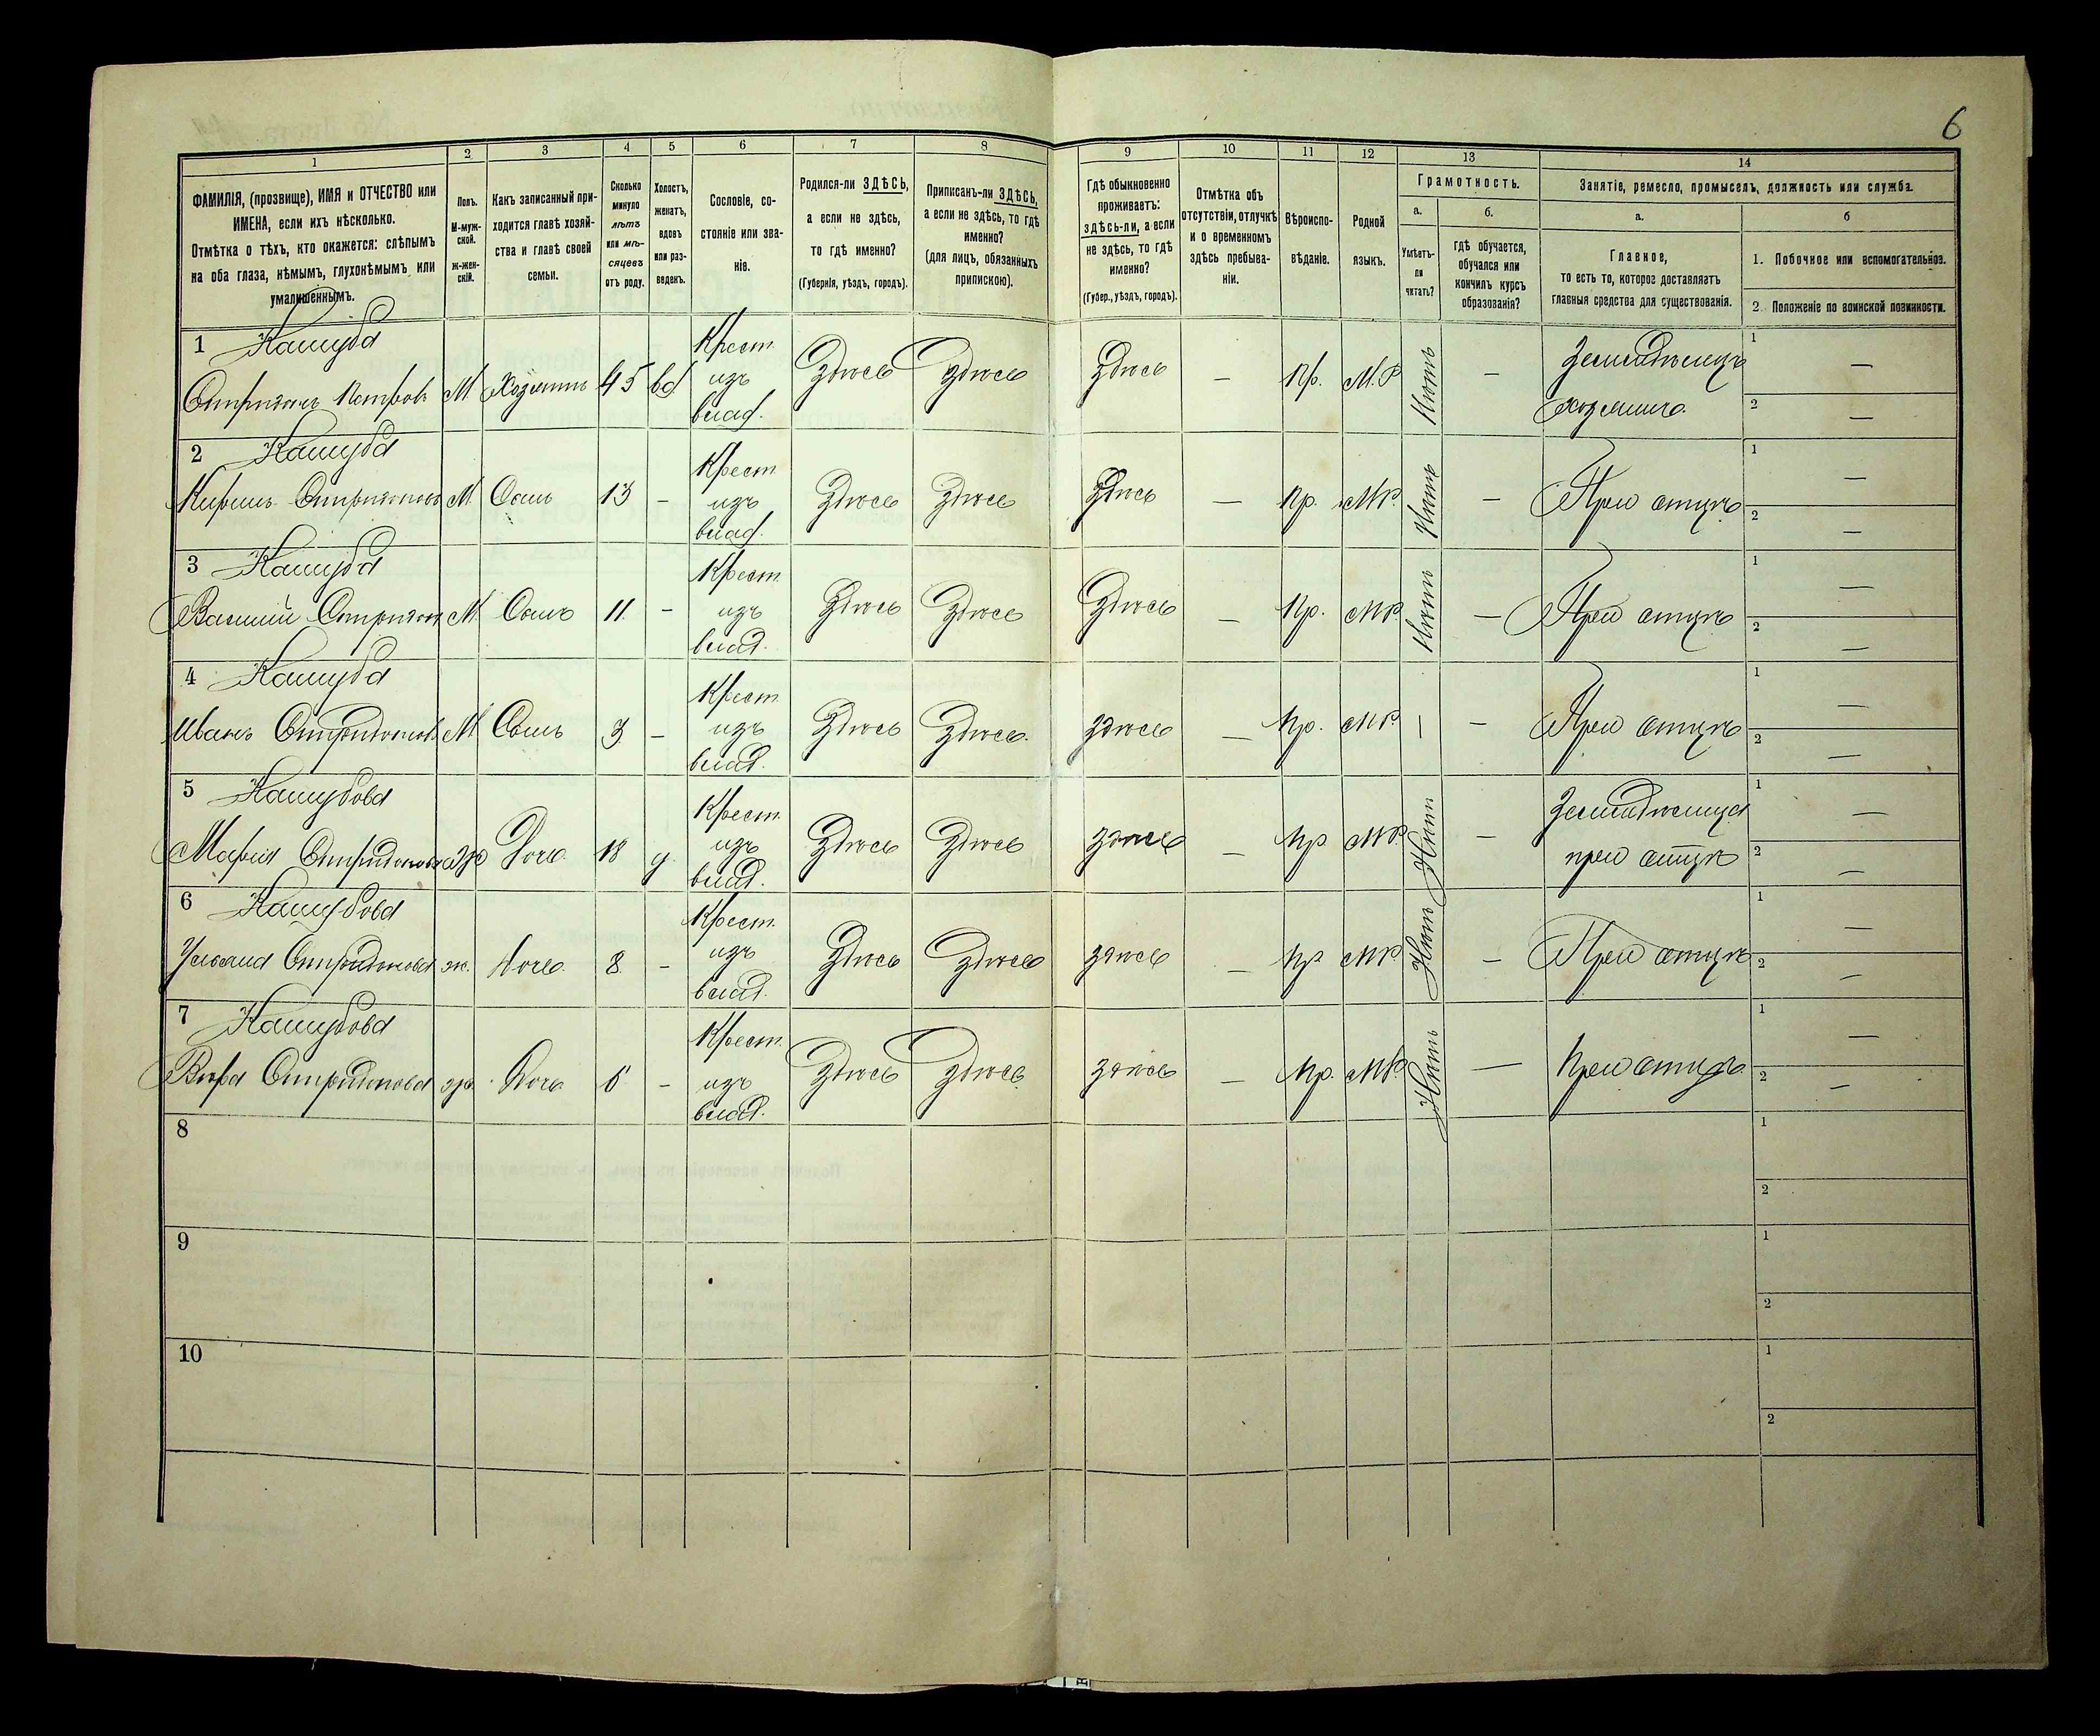 6
1
2
3
4
5
6
7
8
9
10
11
12
13
14
ФАМИЛІЯ, (прозвище), ИМЯ и ОТЧЕСТВО или
ИМЕНА, если ихъ нѣсколько.
Отмѣтка о тѣхъ, кто окажется: слѣпымъ
на оба глаза, нѣмымъ, глухонѣмымъ или
умалишеннымъ.
Полъ.
М-муж-
ской.
Ж-жен-
скій.
Какъ записанный при-
ходится главѣ хозяй-
ства и главѣ своей
семьи.
Сколько
минуло
лѣтъ
или мѣ-
сяцевъ
отъ роду.
Холостъ,
женатъ,
вдовъ
или раз-
веденъ.
Сословіе, со-
стояніе или зва-
ніе.
Родился-ли ЗДѢСЬ,
а если не здѣсь,
то гдѣ именно?
(Губернія, уѣздъ, городъ).
Приписанъ-ли ЗДѢСЬ,
а если не здѣсь, то гдѣ
именно?
(для лицъ, обязанныхъ
припискою).
Гдѣ обыкновенно
проживаетъ:
здѣсь-ли, а если
не здѣсь, то гдѣ
именно?
(Губер., уѣздъ, городъ).
Отмѣтка объ
отсутствіи, отлучкѣ
и о временномъ
здѣсь пребыва-
ніи.
Вѣроиспо-
вѣданіе.
Родной
языкъ.
Грамотность.
а.
Умѣетъ-
ли
читать?
б.
гдѣ обучается,
обучался или
кончилъ курсъ
образованія?
Занятіе, ремесло, промыселъ, должность или служба.
а.
Главное,
то есть то, которое доставляетъ
главныя средства для существованія.
б
1. Побочное или вспомогательное.
2. Положеніе по воинской повинности.
1 Кашуба
Спиридонъ Петровъ М Хозяинъ 45 вд. Крест. изъ влад. Здѣсь Здѣсь Здѣсь — Пр. М.Р. Нѣтъ — Земледѣлецъ хозяинъ 1 — 2 —
2 Кашуба
Спиридоновъ М. Сынъ 13 — Крест. изъ влад. Здѣсь Здѣсь Здѣсь — Пр. МР. Нѣтъ — При отцѣ 1 — 2 —
3 Кашуба
Василій Спиридон М. Сынъ 11. — Крест. изъ влад. Здѣсь Здѣсь Здѣсь — Пр. МР. Нѣтъ — При отцѣ 1 — 2 —
4 Кашуба
Иванъ Спиридоновъ М. Сынъ 3 — Крест. изъ влад. Здѣсь Здѣсь. здѣсь — Пр. МР. — — При отцѣ 1 — 2 —
5 Кашубова
Марія Спиридонова ж Дочь 18 д. Крест. изъ влад. Здѣсь Здѣсь здѣсь — Пр МР. Нѣт — Земледѣлица при отцѣ 1 — 2 —
6 Кашубова
Ульяна Спиридонова ж. Дочь. 8 — Крест. изъ влад. Здѣсь Здѣсь здѣсь — Пр МР. Нѣтъ — При отцѣ 1 — 2 —
7 Кашубова
Вѣра Спиридонова ж. Дочь — Крест. изъ влад. Здѣсь Здѣсь здѣсь — Пр. МР. Нѣтъ — При отцѣ 1 — 2 —
8 1 2
9 1 2
10 1 2